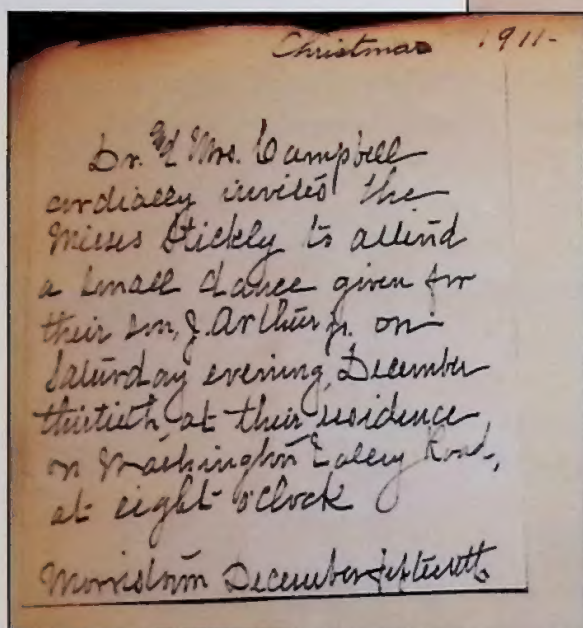 Christmas 1911-
Dr. and Mrs. Campbell
cordially invites the
Misses Stickly to attend
a small dance given for
their son, J. Arthur Jr. on
Saturday evening, December
thirtieth, at their residence
on Washington Valley Road,
at eight o'clock
Morristown December fifteenth